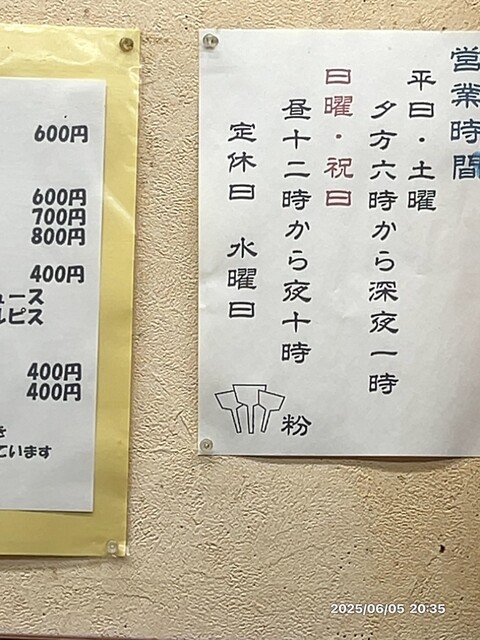 営業時間
平日・土曜
夕方六時から深夜一時
日曜・祝日
昼十二時から夜十時
定休日 水曜日
粉
600円
600円
700円
800円
400円
ュース
ルピス
400円
400円
き
ています
2025/06/05 20:35